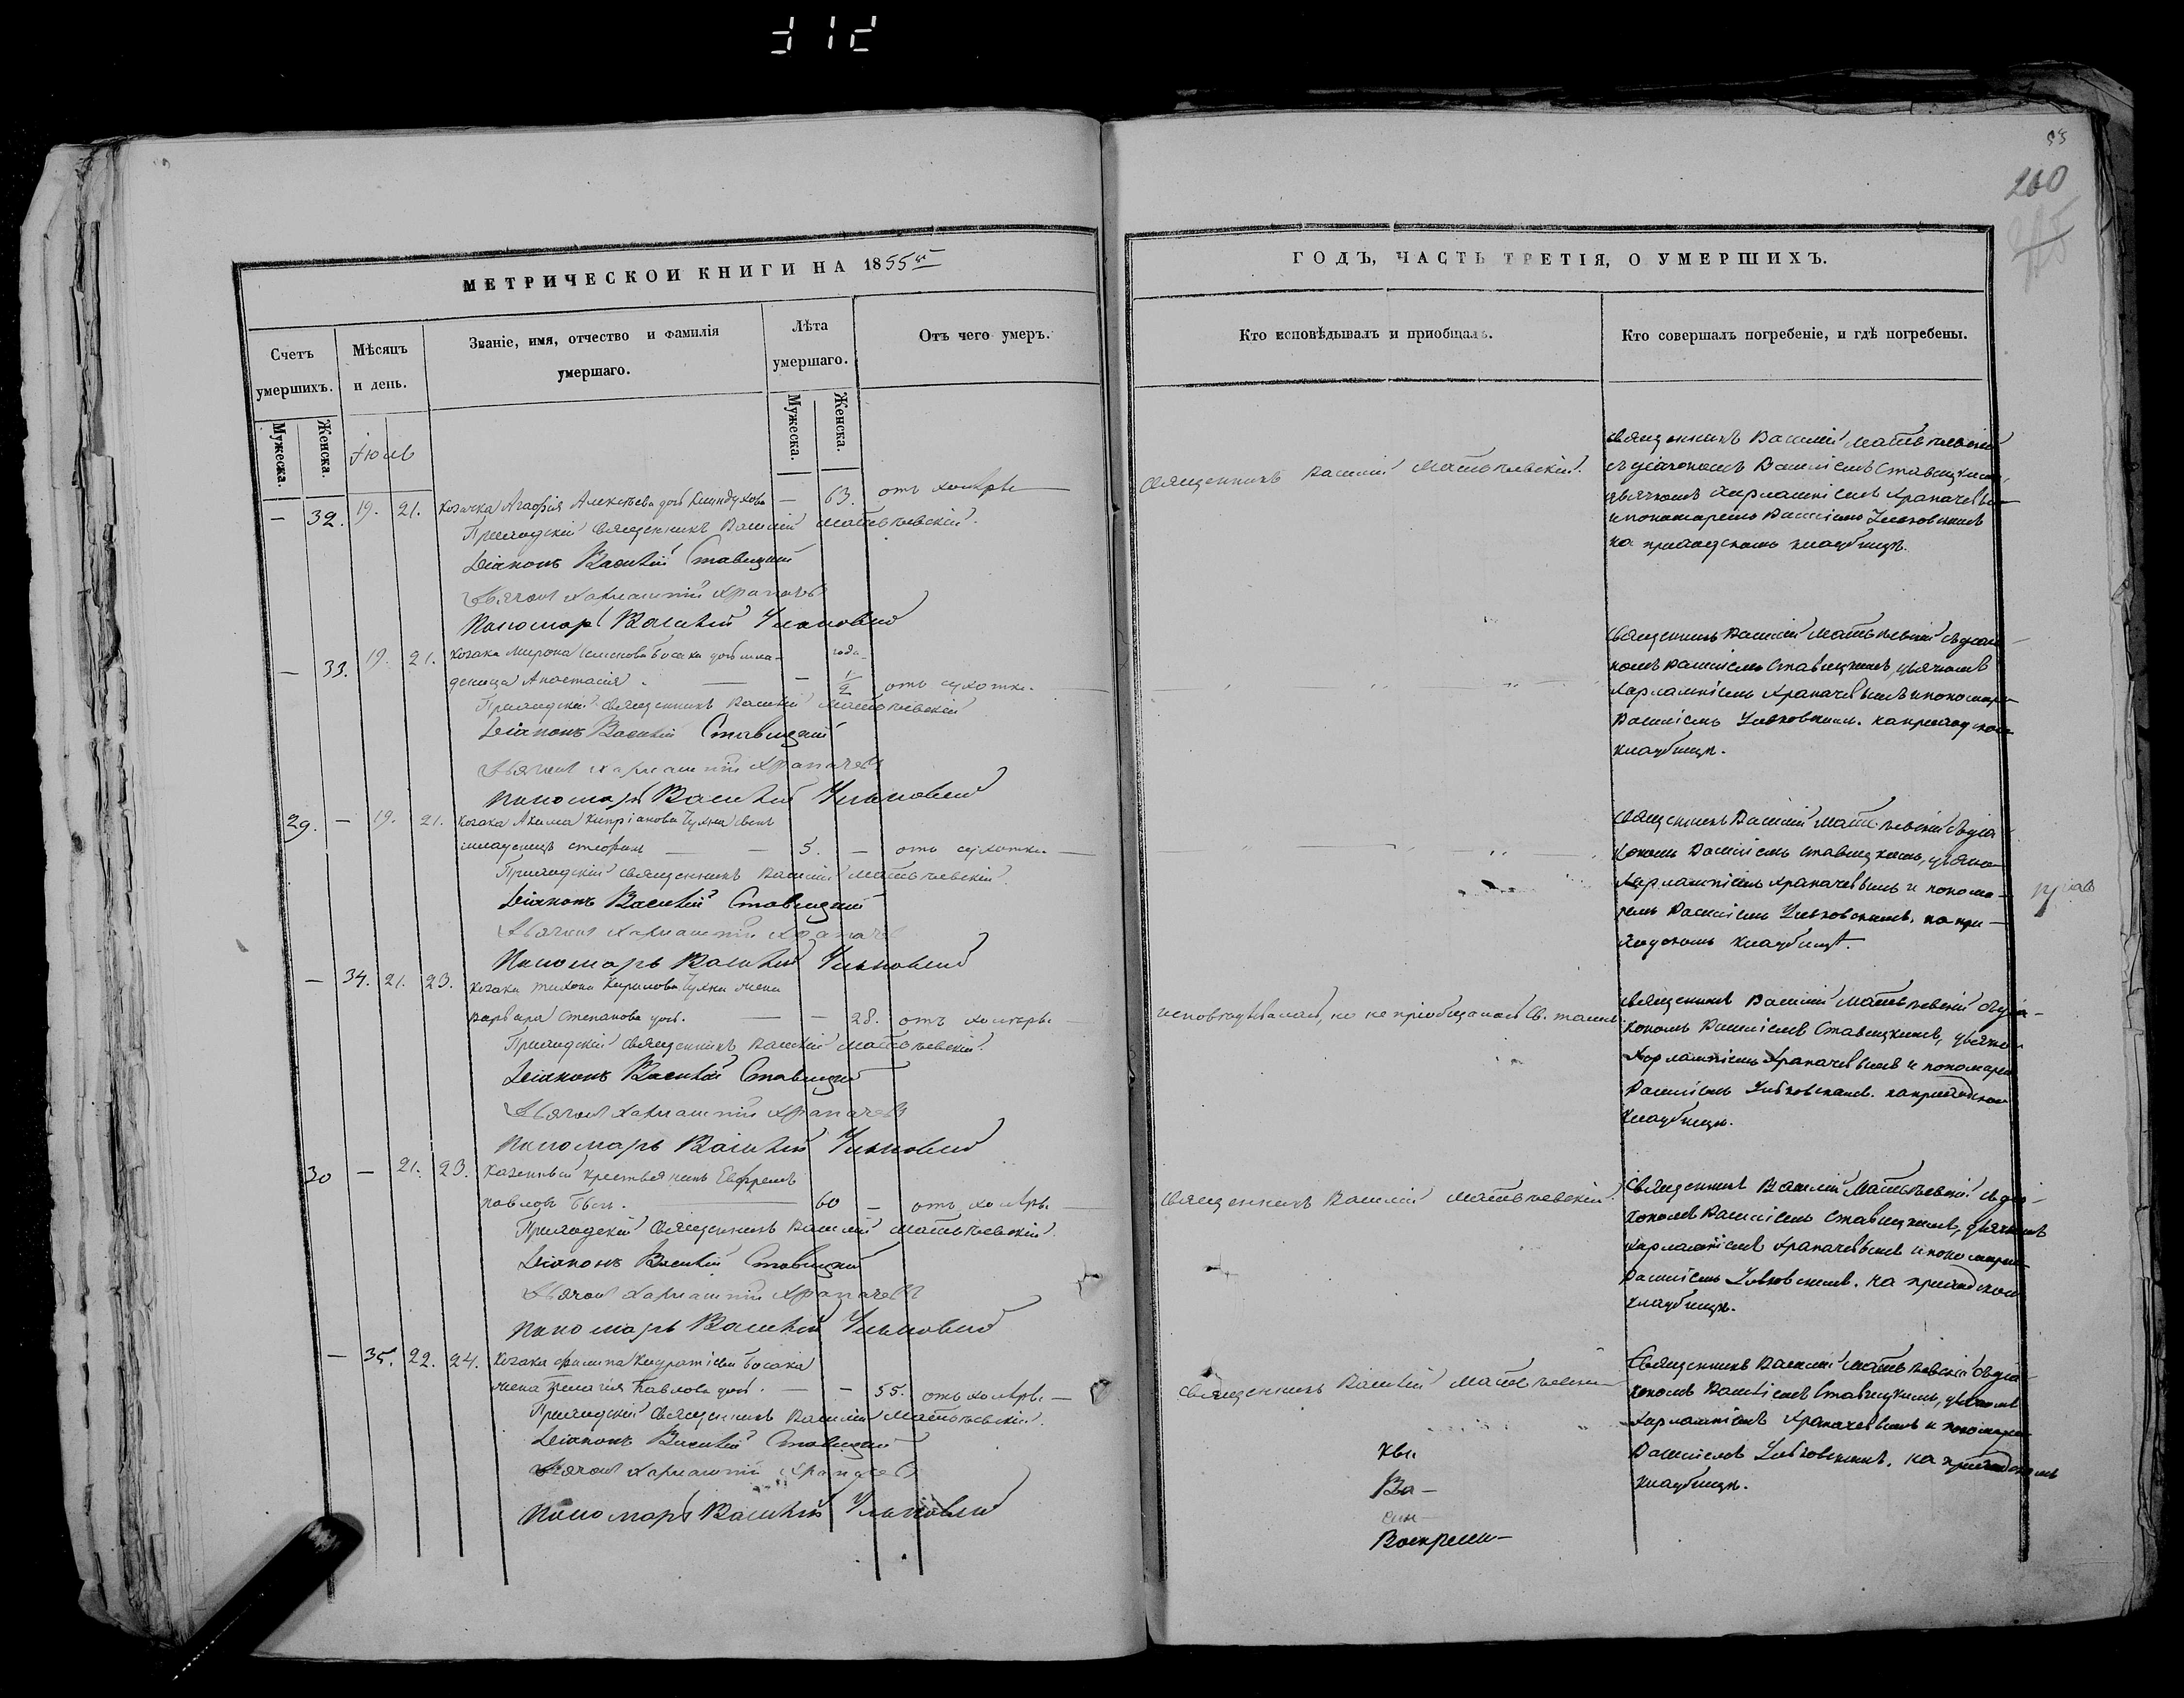 312
93
260
МЕТРИЧЕСКОЙ КНИГИ НА 1855й
Счетъ умершихъ.
Мѣсяцъ и день.
Званіе, имя, отчество и фамилія умершаго.
Лѣта умершаго.
Отъ чего умеръ.
Мужеска.
Женска.
Мужеска.
Женска.
Іюль
— 32. 19. 21. козачка Агафія Алексѣева доч — 63. отъ холеры
Приходскій Священникъ Василій Матвѣевскій.
Діаконъ Василій Ставицкій
Дьячокъ Харлампій Храпачев
Пономарь Василій
— 33. 19. 21. козака Мирона Босака дочь мла- года
деница Анастасія. — 1/2 отъ сухотки.
Приходскій Священникъ Василій Матвѣевскій
Діаконъ Василій Ставицкій
Дьячокъ Харлампій Храпачев
Пономарь Василій
29. — 19. 21. козака Акима Кипріанова Чухна сынъ
младенецъ Стефанъ — 5. — отъ сухотки
Приходскій священникъ Василій Матвѣевскій.
Діаконъ Василій Ставицкій
Дьячокъ Харлампій Храпачев
Пономарь Василій
— 34. 21. 23. козака Тихона Кирилова Чухна жена
Варвара Степанова доч. — 28. отъ холеры
Приходскій Священникъ Василій Матвѣевскій.
Діаконъ Василій Ставицкій
Дьячокъ Харлампій Храпачев
Пономарь Василій
30 — 21. 23. казенный крестьянинъ Евфремъ
Павловъ — 60 — отъ холеры
Приходскій Священникъ Василій Матвѣевскій.
Діаконъ Василій Ставицкій
Дьячокъ Харлампій Храпачев
Пономарь Василій
— 35. 22. 24. козака Филипа Босака
жена Павлова доч. — 55. отъ холеры —
Приходскій Священникъ Василій Матвѣевскій.
Діаконъ Василій Ставицкій
Дьячокъ Харлампій Храпачев
Пономарь Василій
ГОДЪ, ЧАСТЬ ТРЕТІЯ, О УМЕРШИХЪ.
Кто исповѣдывалъ и приобщалъ.
Кто совершалъ погребеніе, и гдѣ погребены.
Священникъ Василій Матвѣевскій.
Священникъ Василій Матвѣевскій
съ діакономъ Василіемъ Ставицкимъ,
дьячкомъ Харлампіемъ Храпачевы-
и пономаремъ Василіемъ
на приходскомъ кладбищѣ.
Священникъ Василій Матвѣевскій съ діак
номъ Василіемъ Ставицкимъ, дьячкомъ
Харлампіемъ Храпачевымъ и пономаре-
Василіемъ на приходском
кладбищѣ.
Священникъ Василій Матвѣевскій съ діа
кономъ Василіемъ Ставицкимъ, дьячко
Харлампіемъ Храпачевымъ и понома-
ремъ Василіемъ на при-
ходскомъ кладбищѣ.
исповѣдывалась, но не пріобщалась Св. таинъ.
Священникъ Василій Матвѣевскій съ діа-
кономъ Василіемъ Ставицкимъ, дьячко
Харлампіемъ Храпачевымъ и пономаре
Василіемъ на приходском
кладбищѣ.
Священникъ Василій Матвѣевскій.
Священникъ Василій Матвѣевскій съ діа-
кономъ Василіемъ Ставицкимъ, дьячкомъ
Харлампіемъ Храпачевымъ и пономаре
Василіемъ на приходском
кладбищѣ.
Священникъ Василій Матвѣевскій
Священникъ Василій Матвѣевскій съ діа
кономъ Василіемъ Ставицкимъ, дьячкомъ
Харлампіемъ Храпачевымъ и пономаре
Василіемъ на приходскомъ
кладбищѣ.
Ва-